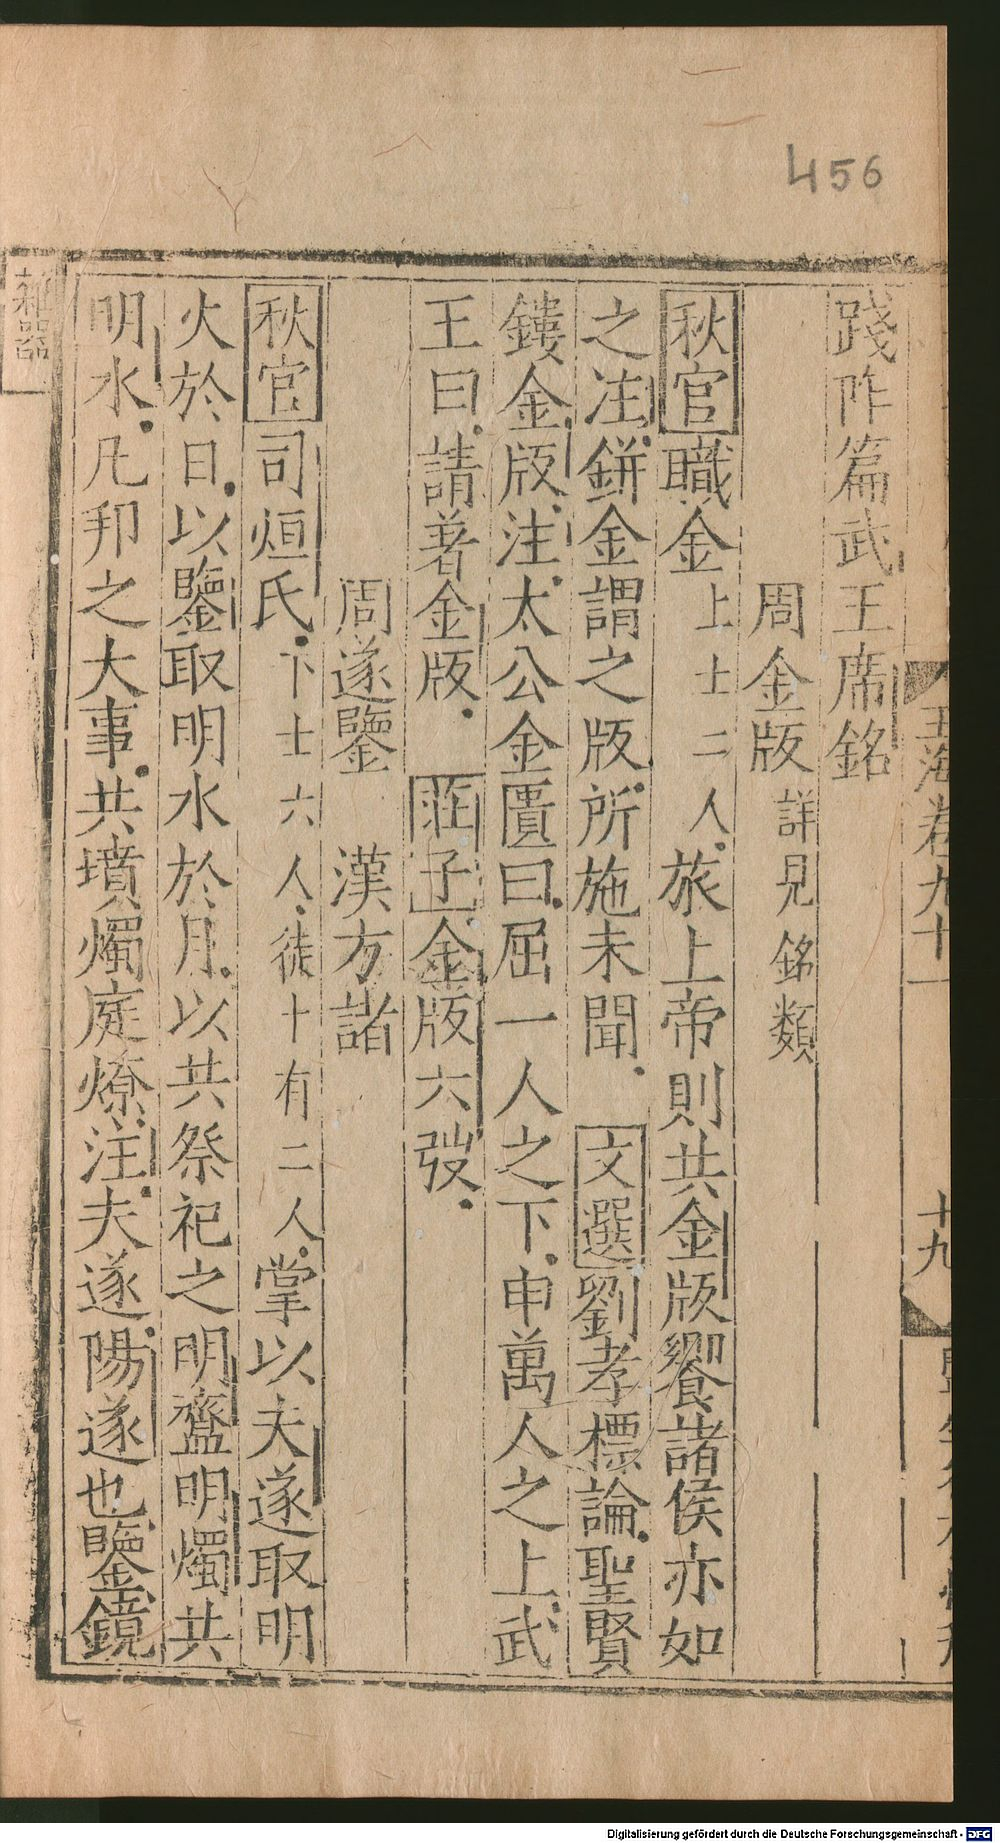 456
踐咋篇武王席銘
周金版詳見銘類
秋官職金上士二人旅上帝則共金版饗諸侯亦如
之注鉼金謂之版所施未聞 文選劉孝標論聖賢
鏤金版注太公金匱曰屈一人之下申萬人之上武
王曰請著金版 莊子金版六弢
周遂鑒 漢方諸
秋官司烜氏下士六人徒十有二人掌以夫遂取明
火於日以鑒取明水於月以共祭祀之明齍明燭共
明水凡邦之大事共墳燭庭燎注夫遂陽遂也鑒鏡
雜器
玉海卷九十一
十九
Digitalisierung gefördert durch die Deutsche Forschungsgemeinschaft - DFG